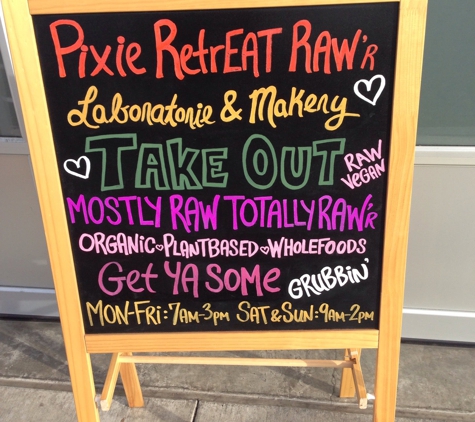 Pixie RetrEAT RAW'r
Laboratorie & Makery
TAKE OUT
RAW
VEGAN
MOSTLY RAW TOTALLY RAW'r
ORGANIC♡PLANTBASED♡WHOLEFOODS
Get YA SOME GRUBBIN'
MON-FRI: 7AM-3PM SAT & SUN: 9AM-2PM